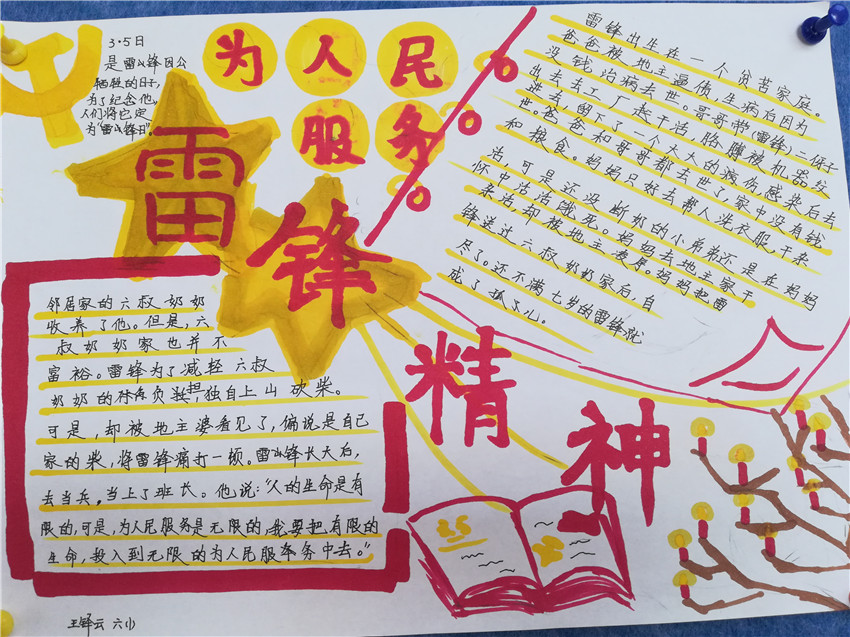 3·5日
是雷锋因公
牺牲的日子,
为了纪念他,
人们将它定
为“雷锋日”。
为人民
服务
雷锋
精神
雷锋出生在一个贫苦家庭。
爸爸被地主逼债,生病后因为
没钱均病去世。哥哥带(雷锋)二保子
出去去工厂赵干活,胳膊被机器
进去,留下了一个大大的病伤,感染后去
世。爸爸和哥哥都去世了,家中没有钱
和粮食。妈妈只好去帮人洗衣服,干杂
活,可是还没断奶的小弟弟还是在妈妈
怀中活活饿死。妈妈去地主家干
杂活,却被地主凌辱。妈妈把雷
锋送过六叔奶奶家后,自
尽了。还不满七岁的雷锋就
成了孤儿。
邻居家的六叔奶奶
收养了他。但是,六
叔奶奶家也并不
富裕。雷锋为了减轻六叔
奶奶的负担,独自上山砍柴。
可是,却被地主婆看见了,偏说是自己
家的柴,将雷锋痛打一顿。雷锋长大后,
去当兵,当上了班长。他说:“人的生命是有
限的,可是,为人民服务是无限的,我要把有限的
生命,投入到无限的为人民服务中去。”
王铎云 六(1)